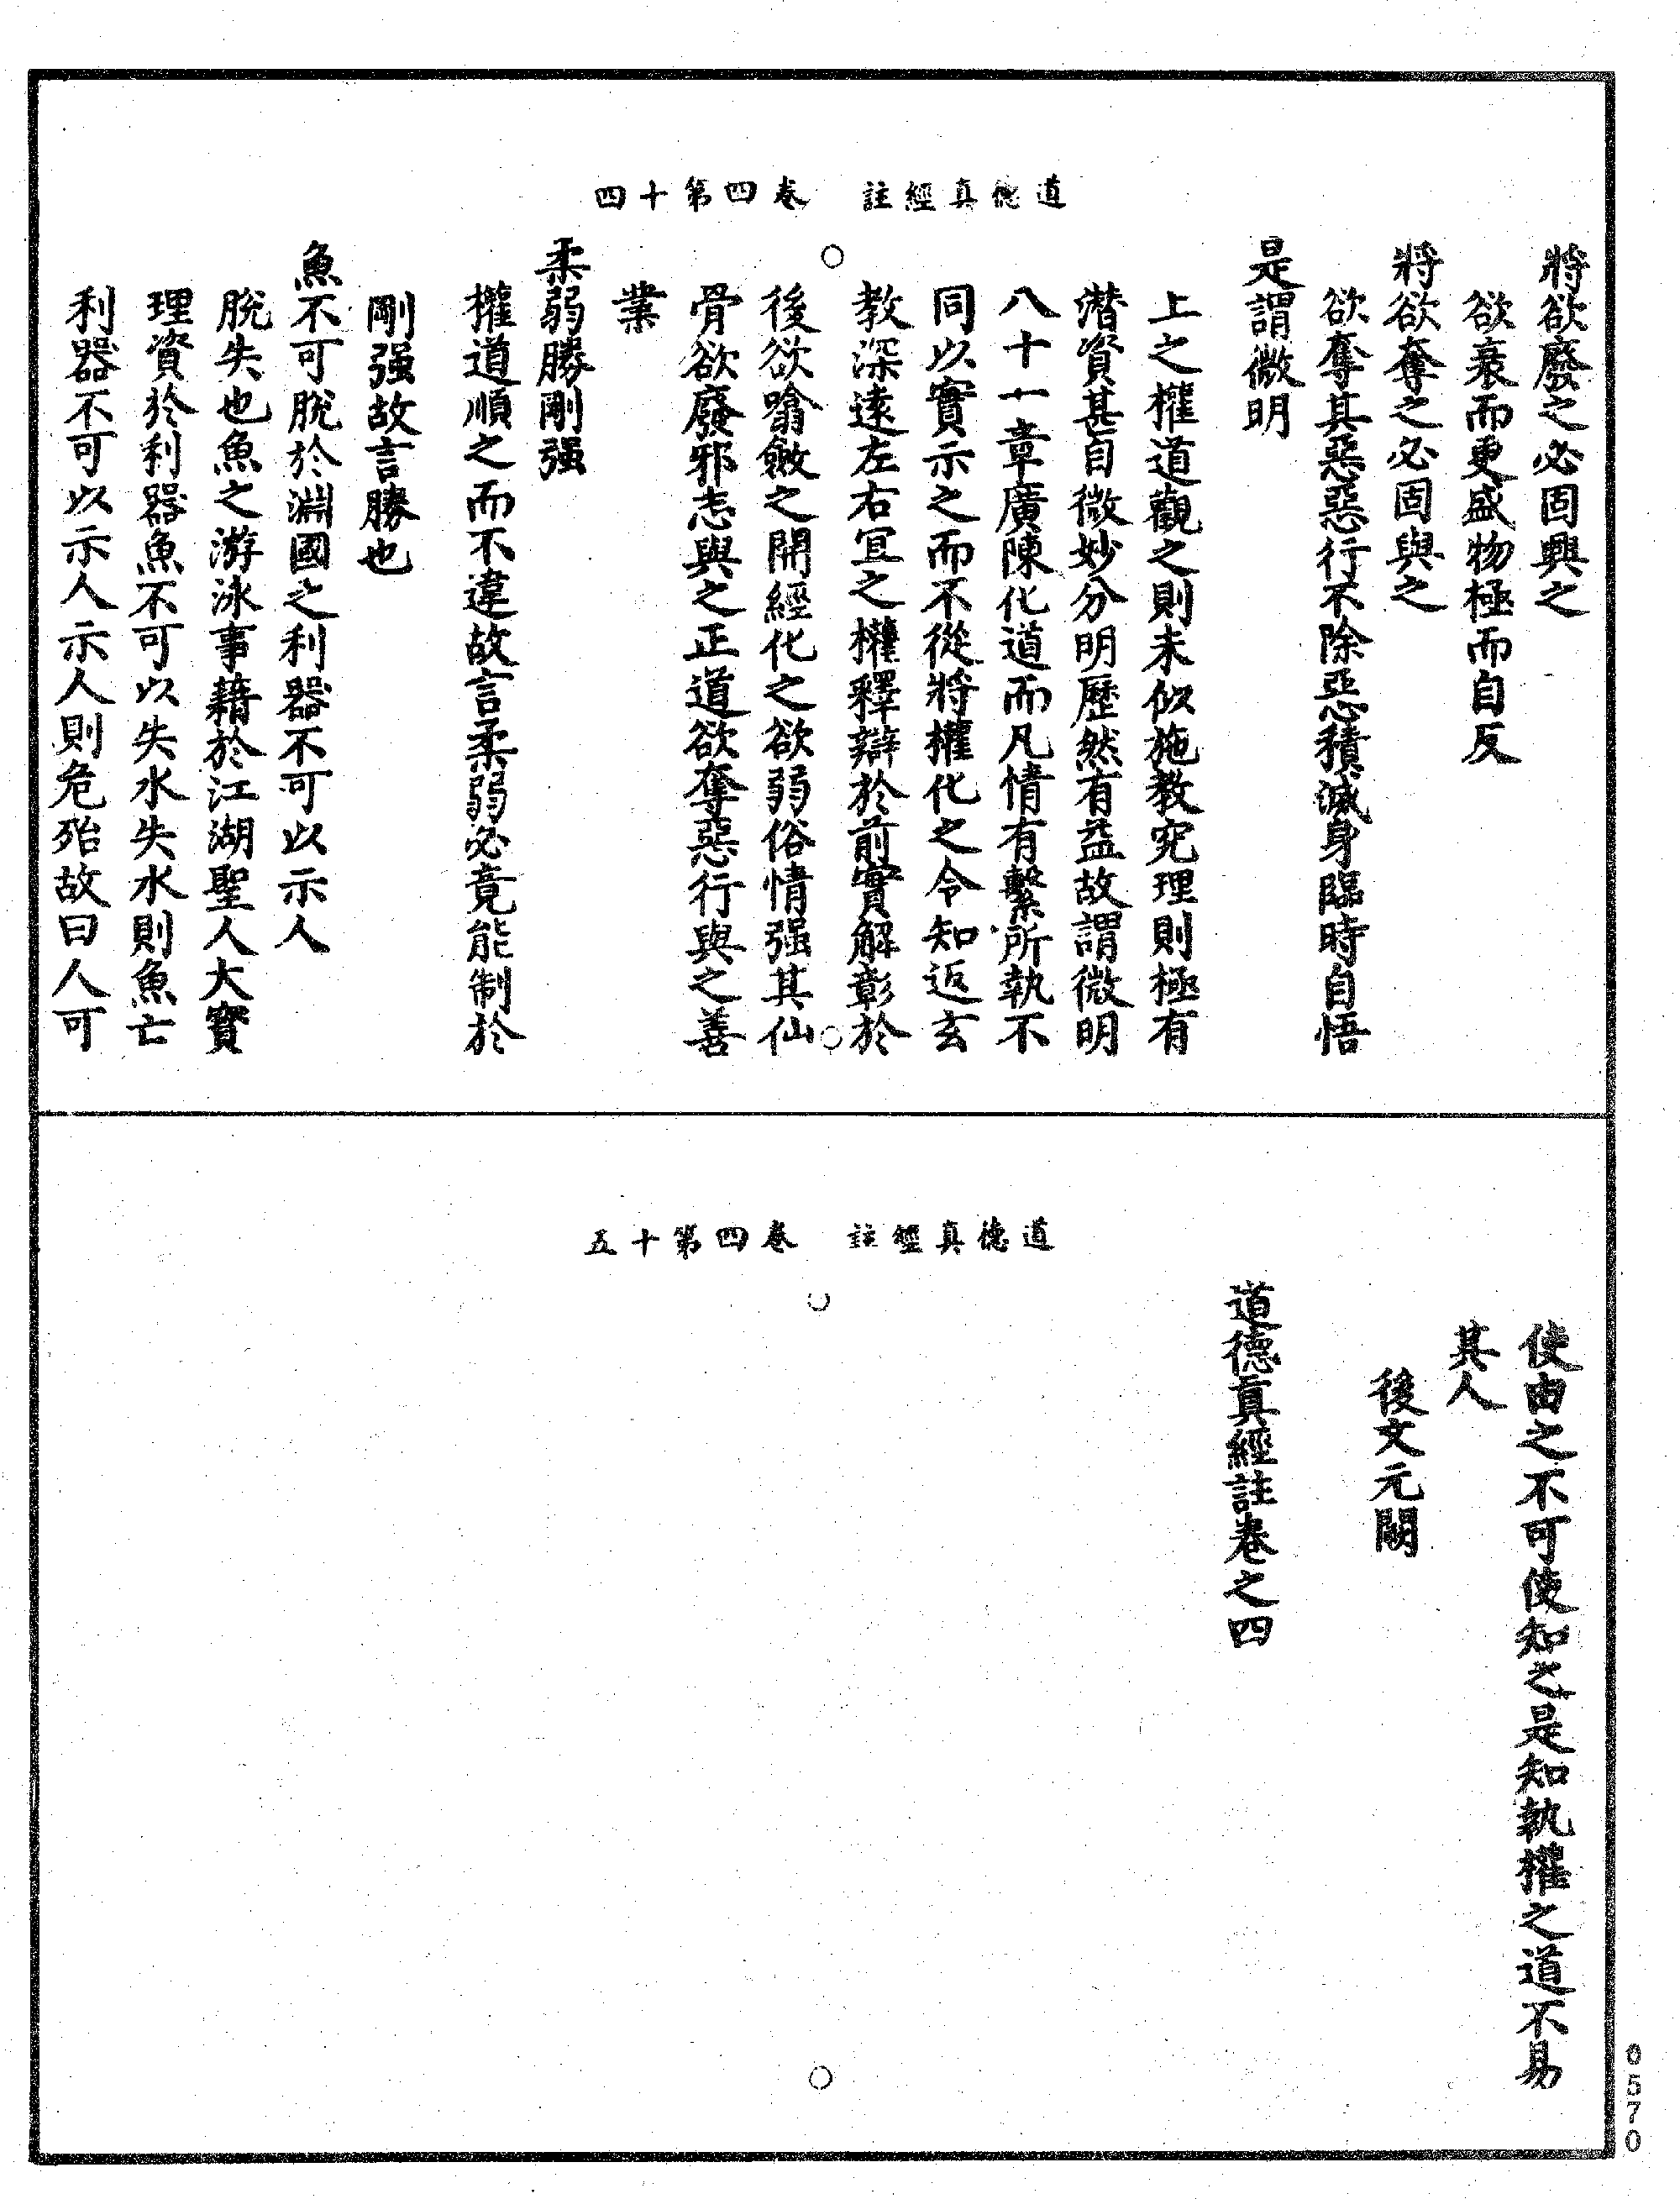 道德真經註　卷四第十四
將欲廢之必固興之
欲衰而更盛物極而自反
將欲奪之必固與之
欲奪其惡惡行不除惡積滅身臨時自悟
是謂微明
上之權道觀之則未似施教究理則極有
潛資甚自微妙分明歷然有益故謂微明
八十一章廣陳化道而凡情有繫所執不
同以實示之而不從將權化之令知返玄
教深遠左右宜之權釋辯於前實解彰於
後欲噏斂之開經化之欲弱俗情强其仙
骨欲廢邪志與之正道欲奪惡行與之善
業
柔弱勝剛强
權道順之而不違故言柔弱必竟能制於
剛强故言勝也
魚不可脫於淵國之利器不可以示人
脫失也魚之游泳事藉於江湖聖人大寳
理資於利器魚不可以失水失水則魚亡
利器不可以示人示人則危殆故曰人可
道德真經註　卷四第十五
使由之不可使知之是知執權之道不易
其人
後文元闕
道德真經註卷之四
0570